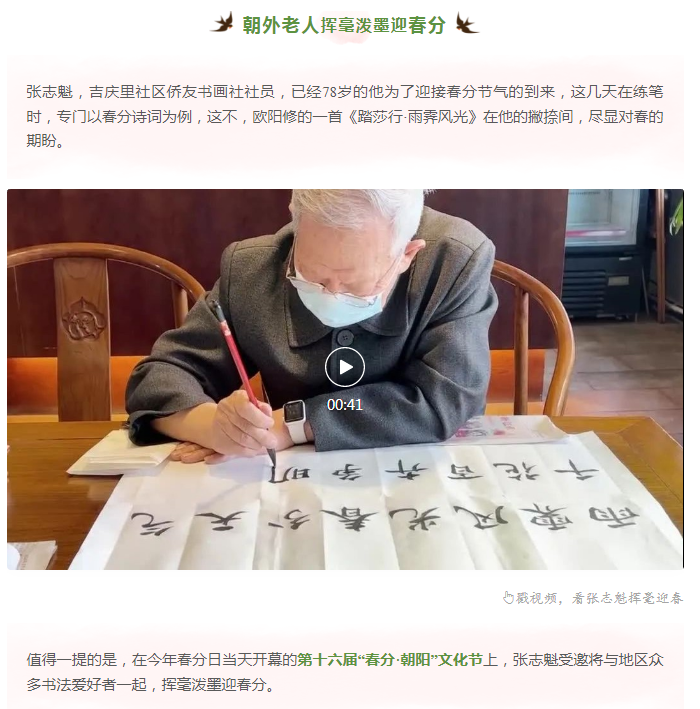 朝外老人挥毫泼墨迎春分
张志魁，吉庆里社区侨友书画社社员，已经78岁的他为了迎接春分节气的到来，这几天在练笔
时，专门以春分诗词为例，这不，欧阳修的一首《踏莎行·雨霁风光》在他的撇捺间，尽显对春的
期盼。
雨霁风光春分天气
千花百卉争明
00:41
戳视频，看张志魁挥毫迎春
值得一提的是，在今年春分日当天开幕的第十六届“春分·朝阳”文化节上，张志魁受邀将与地区众
多书法爱好者一起，挥毫泼墨迎春分。